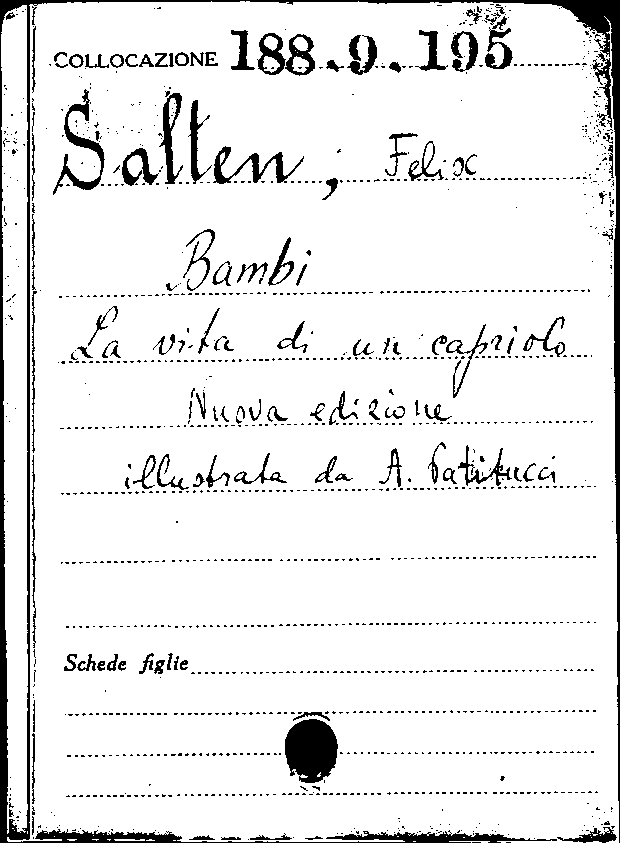 COLLOCAZIONE 188.9.195
Salten, Felix
Bambi
La vita di un capriolo
Nuova edizione
illustrata da A. Patitucci
Schede figlie